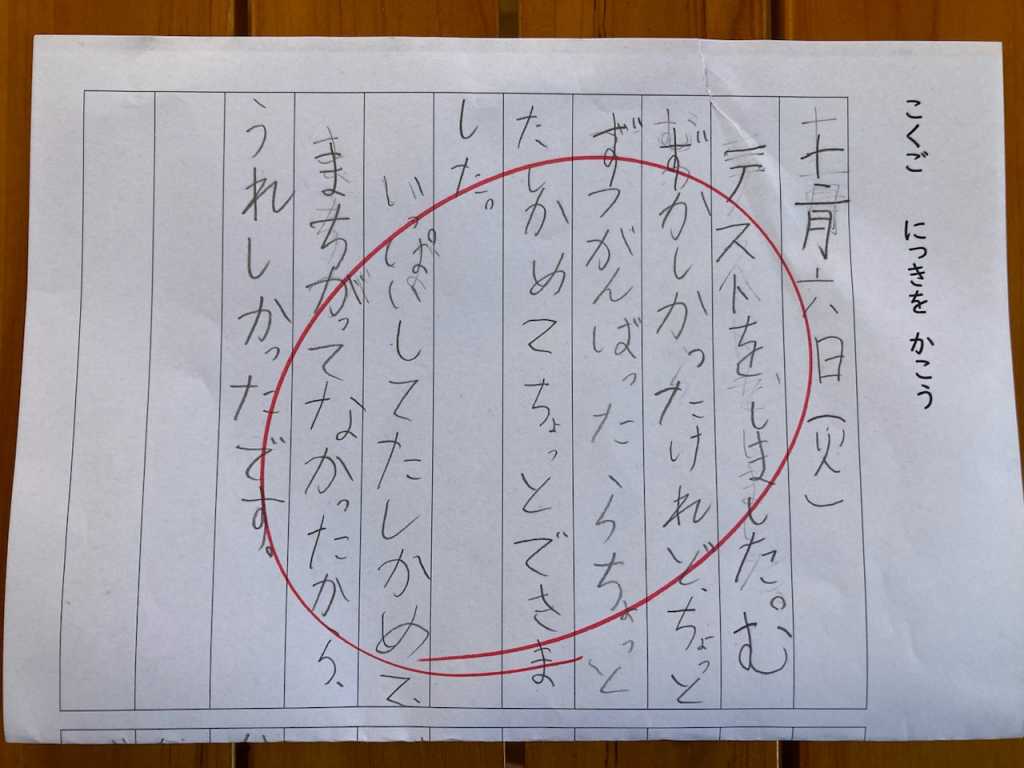 こくご にっきを かこう
十二月六日(火)
テストをしました。む
ずかしかったけれど、ちょっと
ずつがんばったらちょっと
たしかめてちょっとできま
した。
いっぱいしてたしかめて、
まちがってなかったから、
うれしかったです。